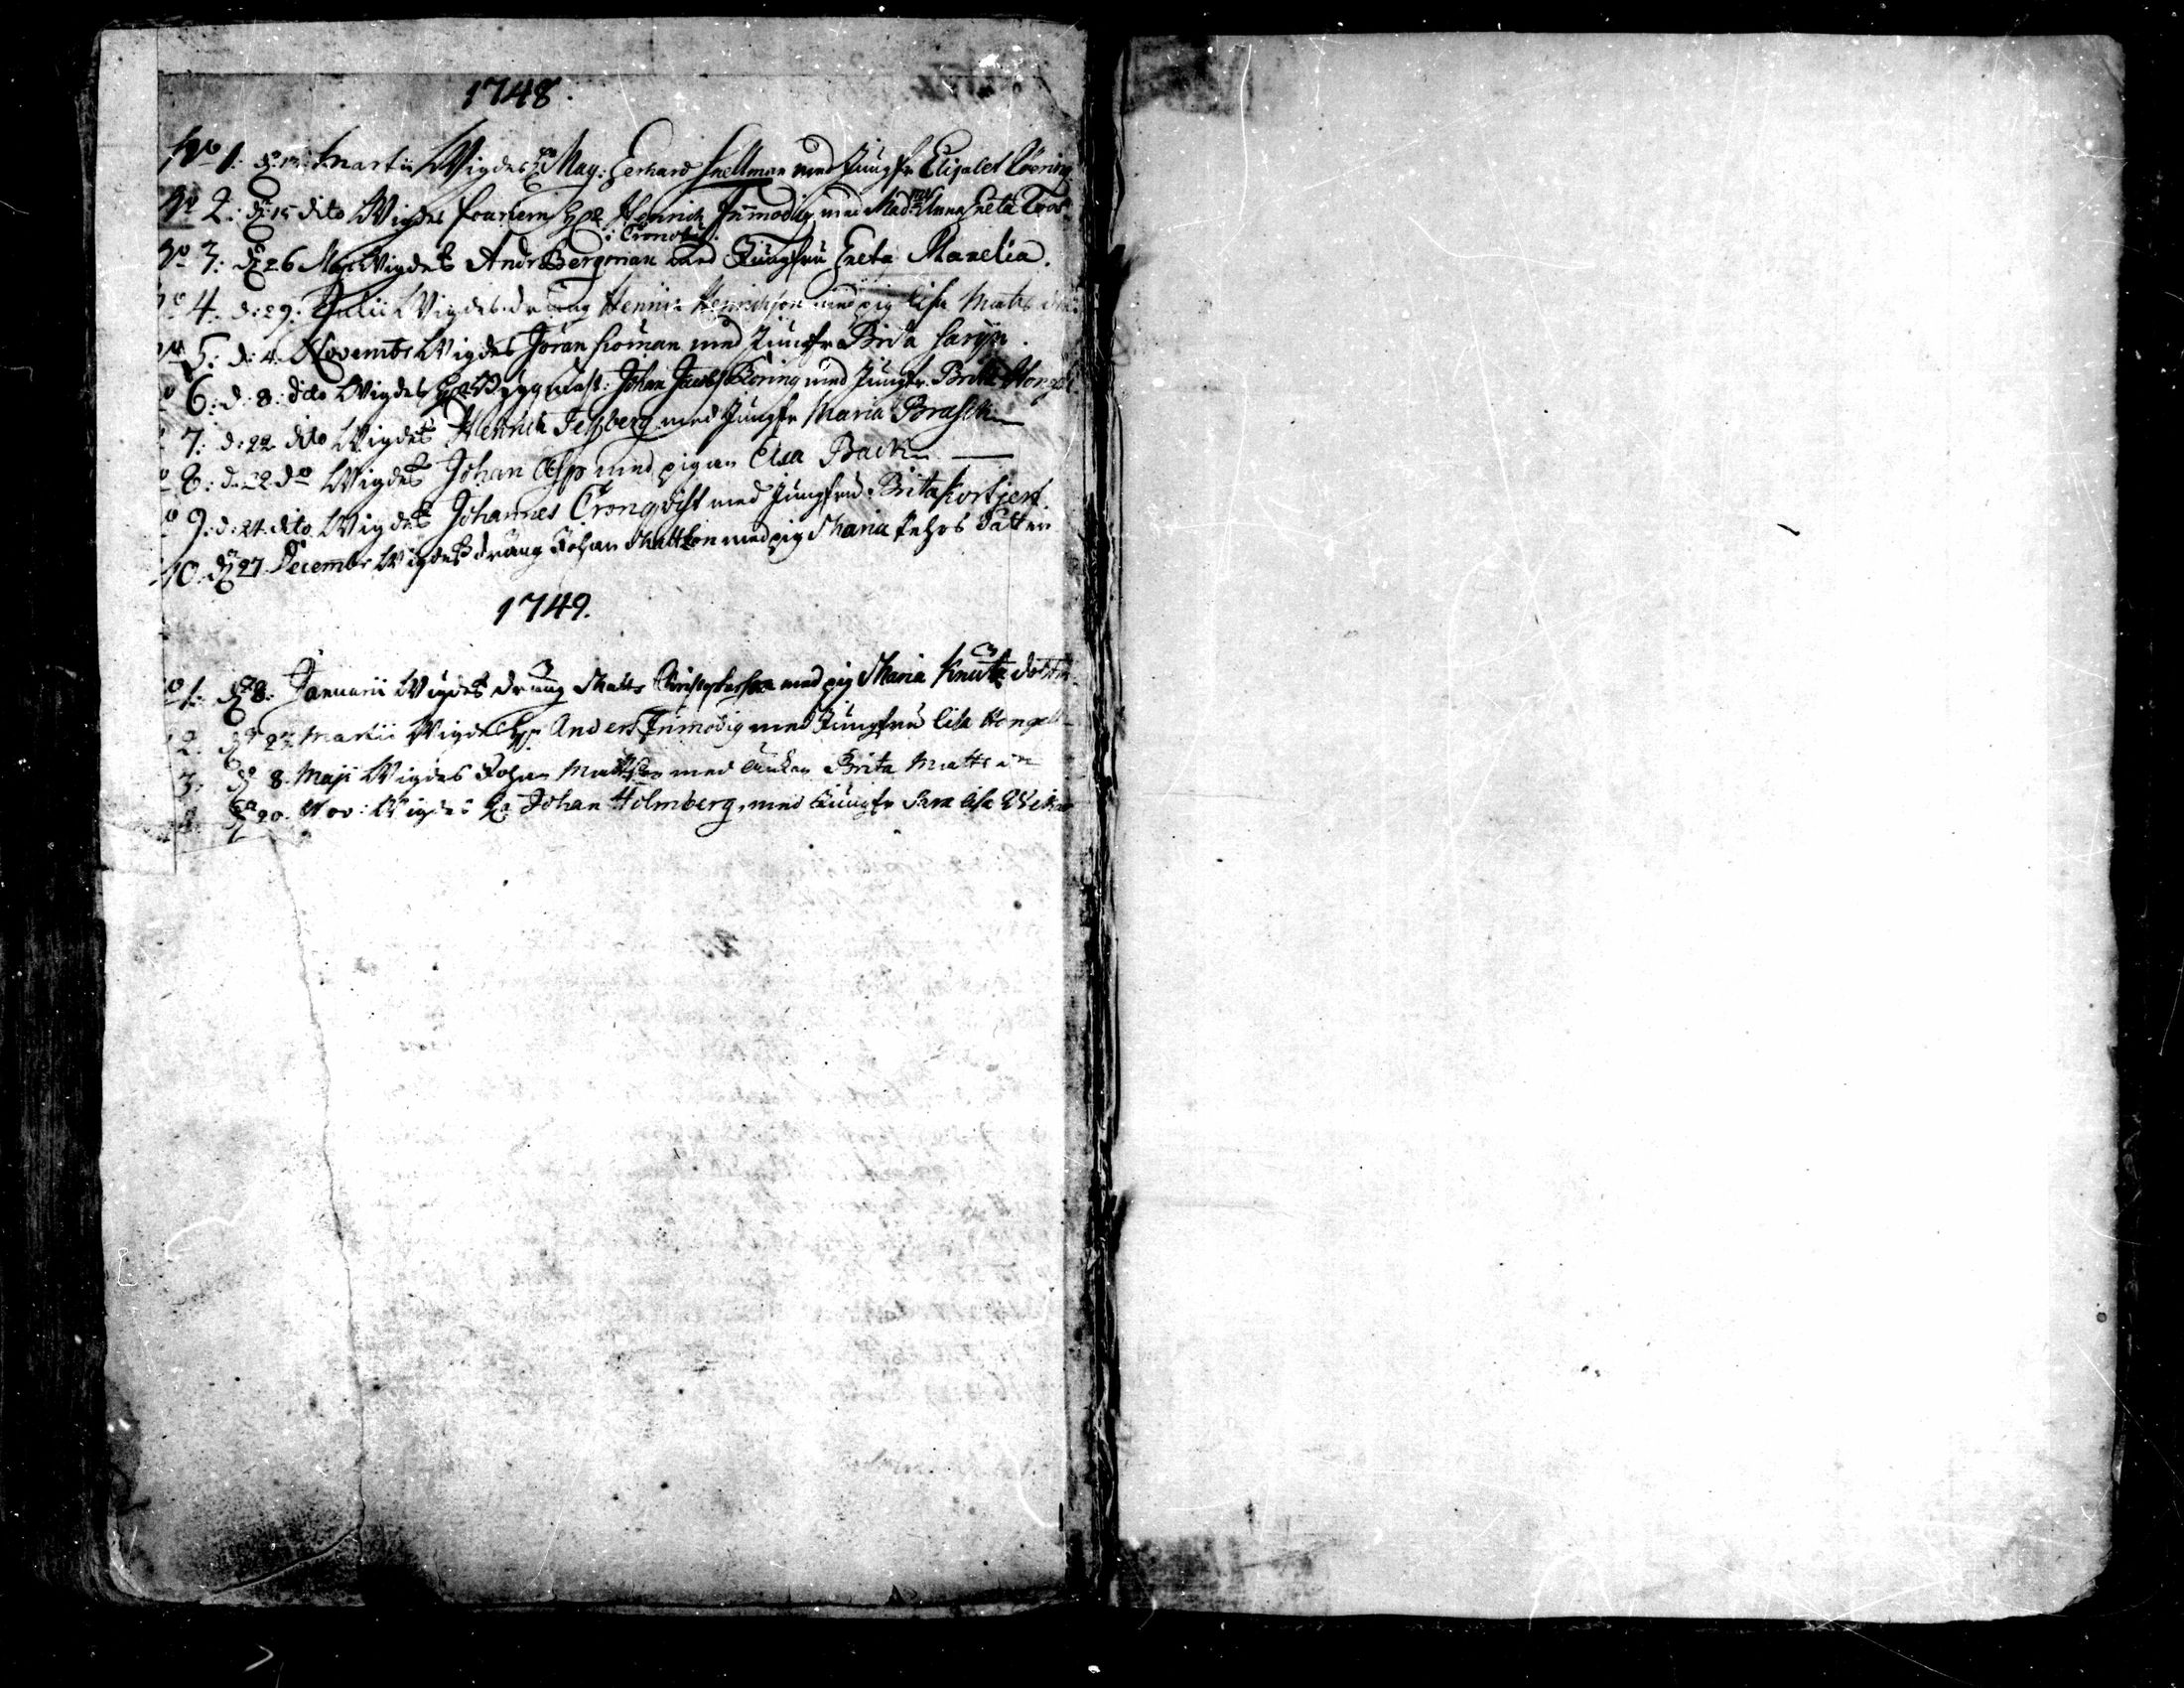 1748.
No 1: d: 13 Martii Wigdes Hr Mag: Gerhard Snellman med Jungfr Elisabet Böring
No 2: dn 15 dito Wigdes Hr Henrich Frimodig med Mad: Anna Greta
i Cronoby.
No 3: dn 26 Maji Wigdes And: Bergman med Jungfru Greta Manelia.
No 4: d: 29: Julii Wigdes dräng Henric Henrichson med pig Lisa Matts
No 5: d: 4. Novembr Wigdes Jöran Roman med Jungfr Brita
6: d: 8: dito Wigdes Hr Byggmäst: Johan Jacob Böring med Jungfr. Britta Hongel
7: d: 22 dito Wigdes Henrich med Jungfr Maria Brask
8: d: 22 do Wigdes Johan Asp med pigan Lisa Back
9: d: 24. dito Wigdes Johannes Cronqvist med Jungfru Brita
10: dn 27. Decembr Wigdes dräng Johan Mattson med pig Maria Pehrs dåtter
1749.
1: dn 8: Januarii Wigdes dräng Matts Christophersson med pig Maria Knuts dotter
2: dn 27 Martii Wigdes Hr Anders Frimodig med Jungfru Lisa Hongell
3: dn 8. Maji Wigdes Johan Mattson med änkan Brita Matts dr
4: dn 20. Nov: Wigdes Hr Johan Holmberg, med Jungfr Sara Lisa